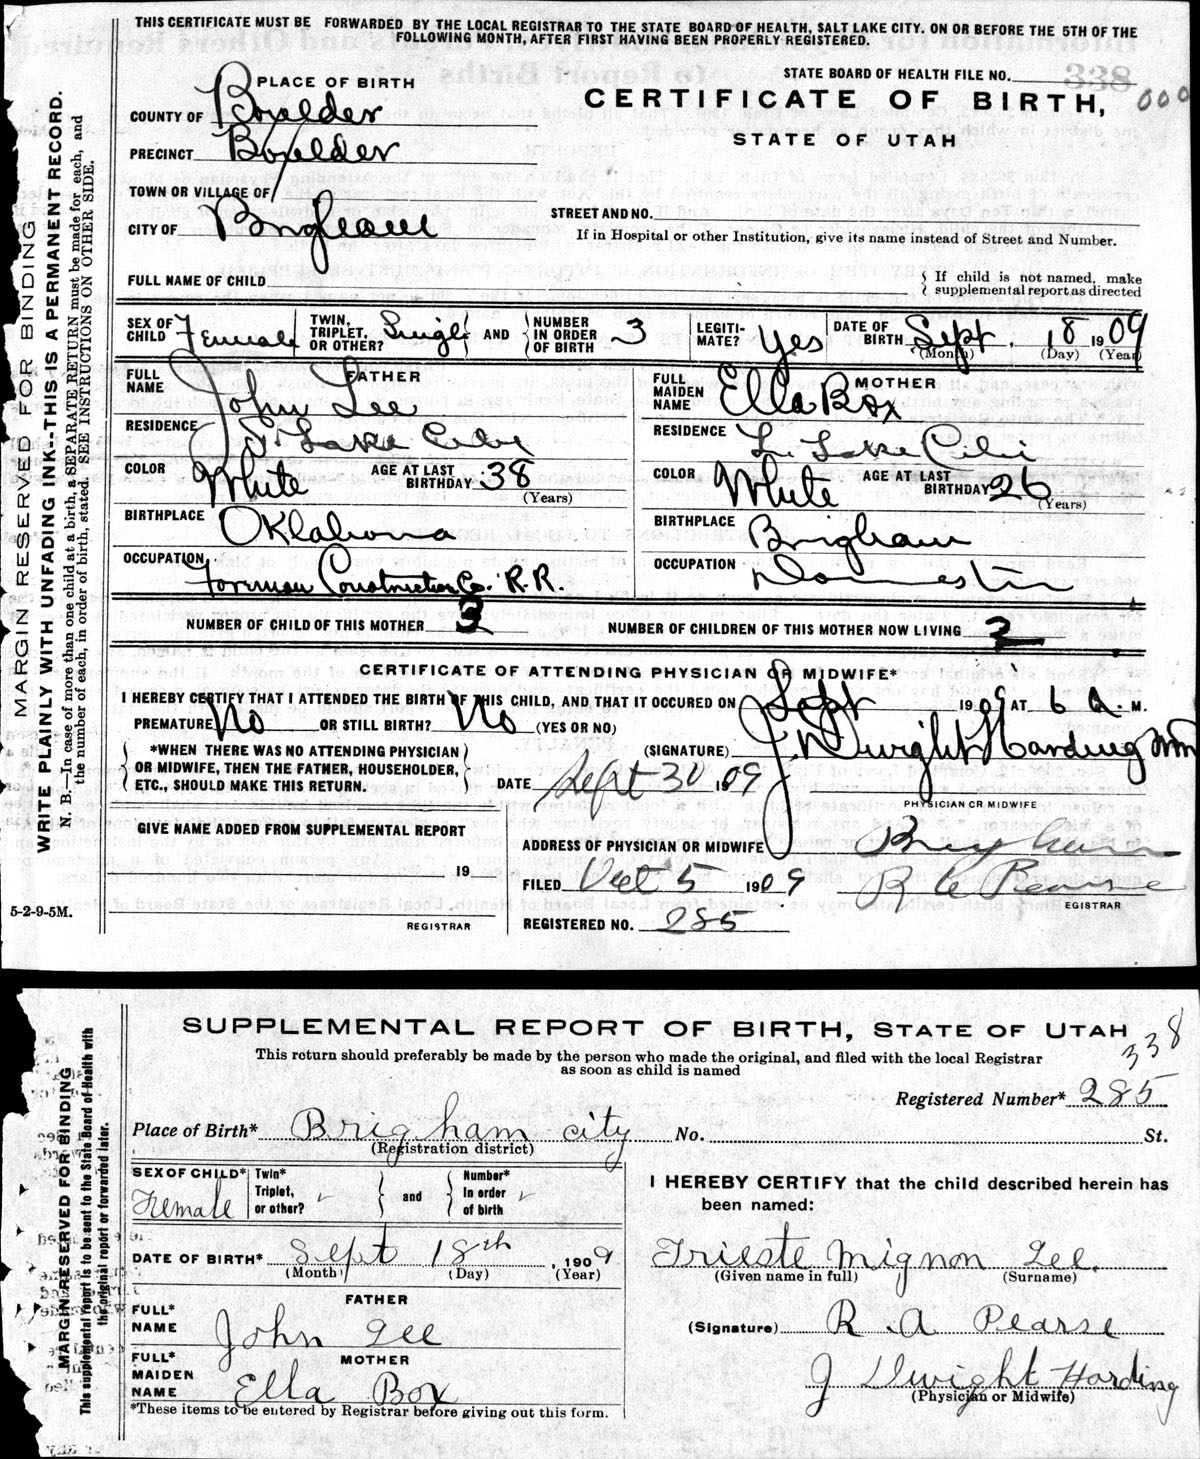 THIS CERTIFICATE MUST BE FORWARDED BY THE LOCAL REGISTRAR TO THE STATE BOARD OF HEALTH, SALT LAKE CITY. ON OR BEFORE THE 5TH OF THE
FOLLOWING MONTH, AFTER FIRST HAVING BEEN PROPERLY REGISTERED.
MARGIN RESERVED FOR BINDING
WRITE PLAINLY WITH UNFADING INK--THIS IS A PERMANENT RECORD.
N. B.—In case of more than one child at a birth, a SEPARATE RETURN must be made for each, and
the number of each, in order of birth, stated. SEE INSTRUCTIONS ON OTHER SIDE.
5-2-9-5M.
STATE BOARD OF HEALTH FILE NO.
338
CERTIFICATE OF BIRTH,
STATE OF UTAH
PLACE OF BIRTH
COUNTY OF Boxelder
PRECINCT Boxelder
TOWN OR VILLAGE OF
CITY OF Brigham
STREET AND NO.
If in Hospital or other Institution, give its name instead of Street and Number.
FULL NAME OF CHILD
If child is not named, make
supplemental report as directed
SEX OF CHILD Female
TWIN, TRIPLET, OR OTHER? Singl
AND
NUMBER IN ORDER OF BIRTH 3
LEGITIMATE? Yes
DATE OF BIRTH Sept. 18 1909
(Month) (Day) (Year)
FATHER
FULL NAME John Lee
RESIDENCE Lake City
COLOR White
AGE AT LAST BIRTHDAY 38
(Years)
BIRTHPLACE Oklahoma
OCCUPATION Forman Construction Co. R.R.
MOTHER
FULL MAIDEN NAME Ella Box
RESIDENCE Lake City
COLOR White
AGE AT LAST BIRTHDAY 26
(Years)
BIRTHPLACE Brigham
OCCUPATION Domestic
NUMBER OF CHILD OF THIS MOTHER 3
NUMBER OF CHILDREN OF THIS MOTHER NOW LIVING 2
CERTIFICATE OF ATTENDING PHYSICIAN OR MIDWIFE*
I HEREBY CERTIFY THAT I ATTENDED THE BIRTH OF THIS CHILD, AND THAT IT OCCURED ON Sept 1909 AT 6 A. M.
PREMATURE No OR STILL BIRTH? No (YES OR NO)
*WHEN THERE WAS NO ATTENDING PHYSICIAN
OR MIDWIFE, THEN THE FATHER, HOUSEHOLDER,
ETC., SHOULD MAKE THIS RETURN.
(SIGNATURE) J. Dwight Harding MD
DATE Sept 30 1909
PHYSICIAN OR MIDWIFE
GIVE NAME ADDED FROM SUPPLEMENTAL REPORT
19
REGISTRAR
ADDRESS OF PHYSICIAN OR MIDWIFE Brigham
FILED Oct 5 1909
Pearse
EGISTRAR
REGISTERED NO. 285
SUPPLEMENTAL REPORT OF BIRTH, STATE OF UTAH
338
This return should preferably be made by the person who made the original, and filed with the local Registrar
as soon as child is named
MARGIN RESERVED FOR BINDING
This supplemental report is to be sent to the State Board of Health with
the original report or forwarded later.
Registered Number* 285
Place of Birth* Brigham city No. St.
(Registration district)
SEX OF CHILD* Female
Twin* Triplet, or other?
and
Number* In order of birth
DATE OF BIRTH* Sept 18th, 1909
(Month) (Day) (Year)
FATHER
FULL* NAME John Lee
MOTHER
FULL* MAIDEN NAME Ella Box
*These items to be entered by Registrar before giving out this form.
I HEREBY CERTIFY that the child described herein has
been named:
Trieste Mignon Lee.
(Given name in full) (Surname)
(Signature) R. A Pearse
J Dwight Harding
(Physician or Midwife)